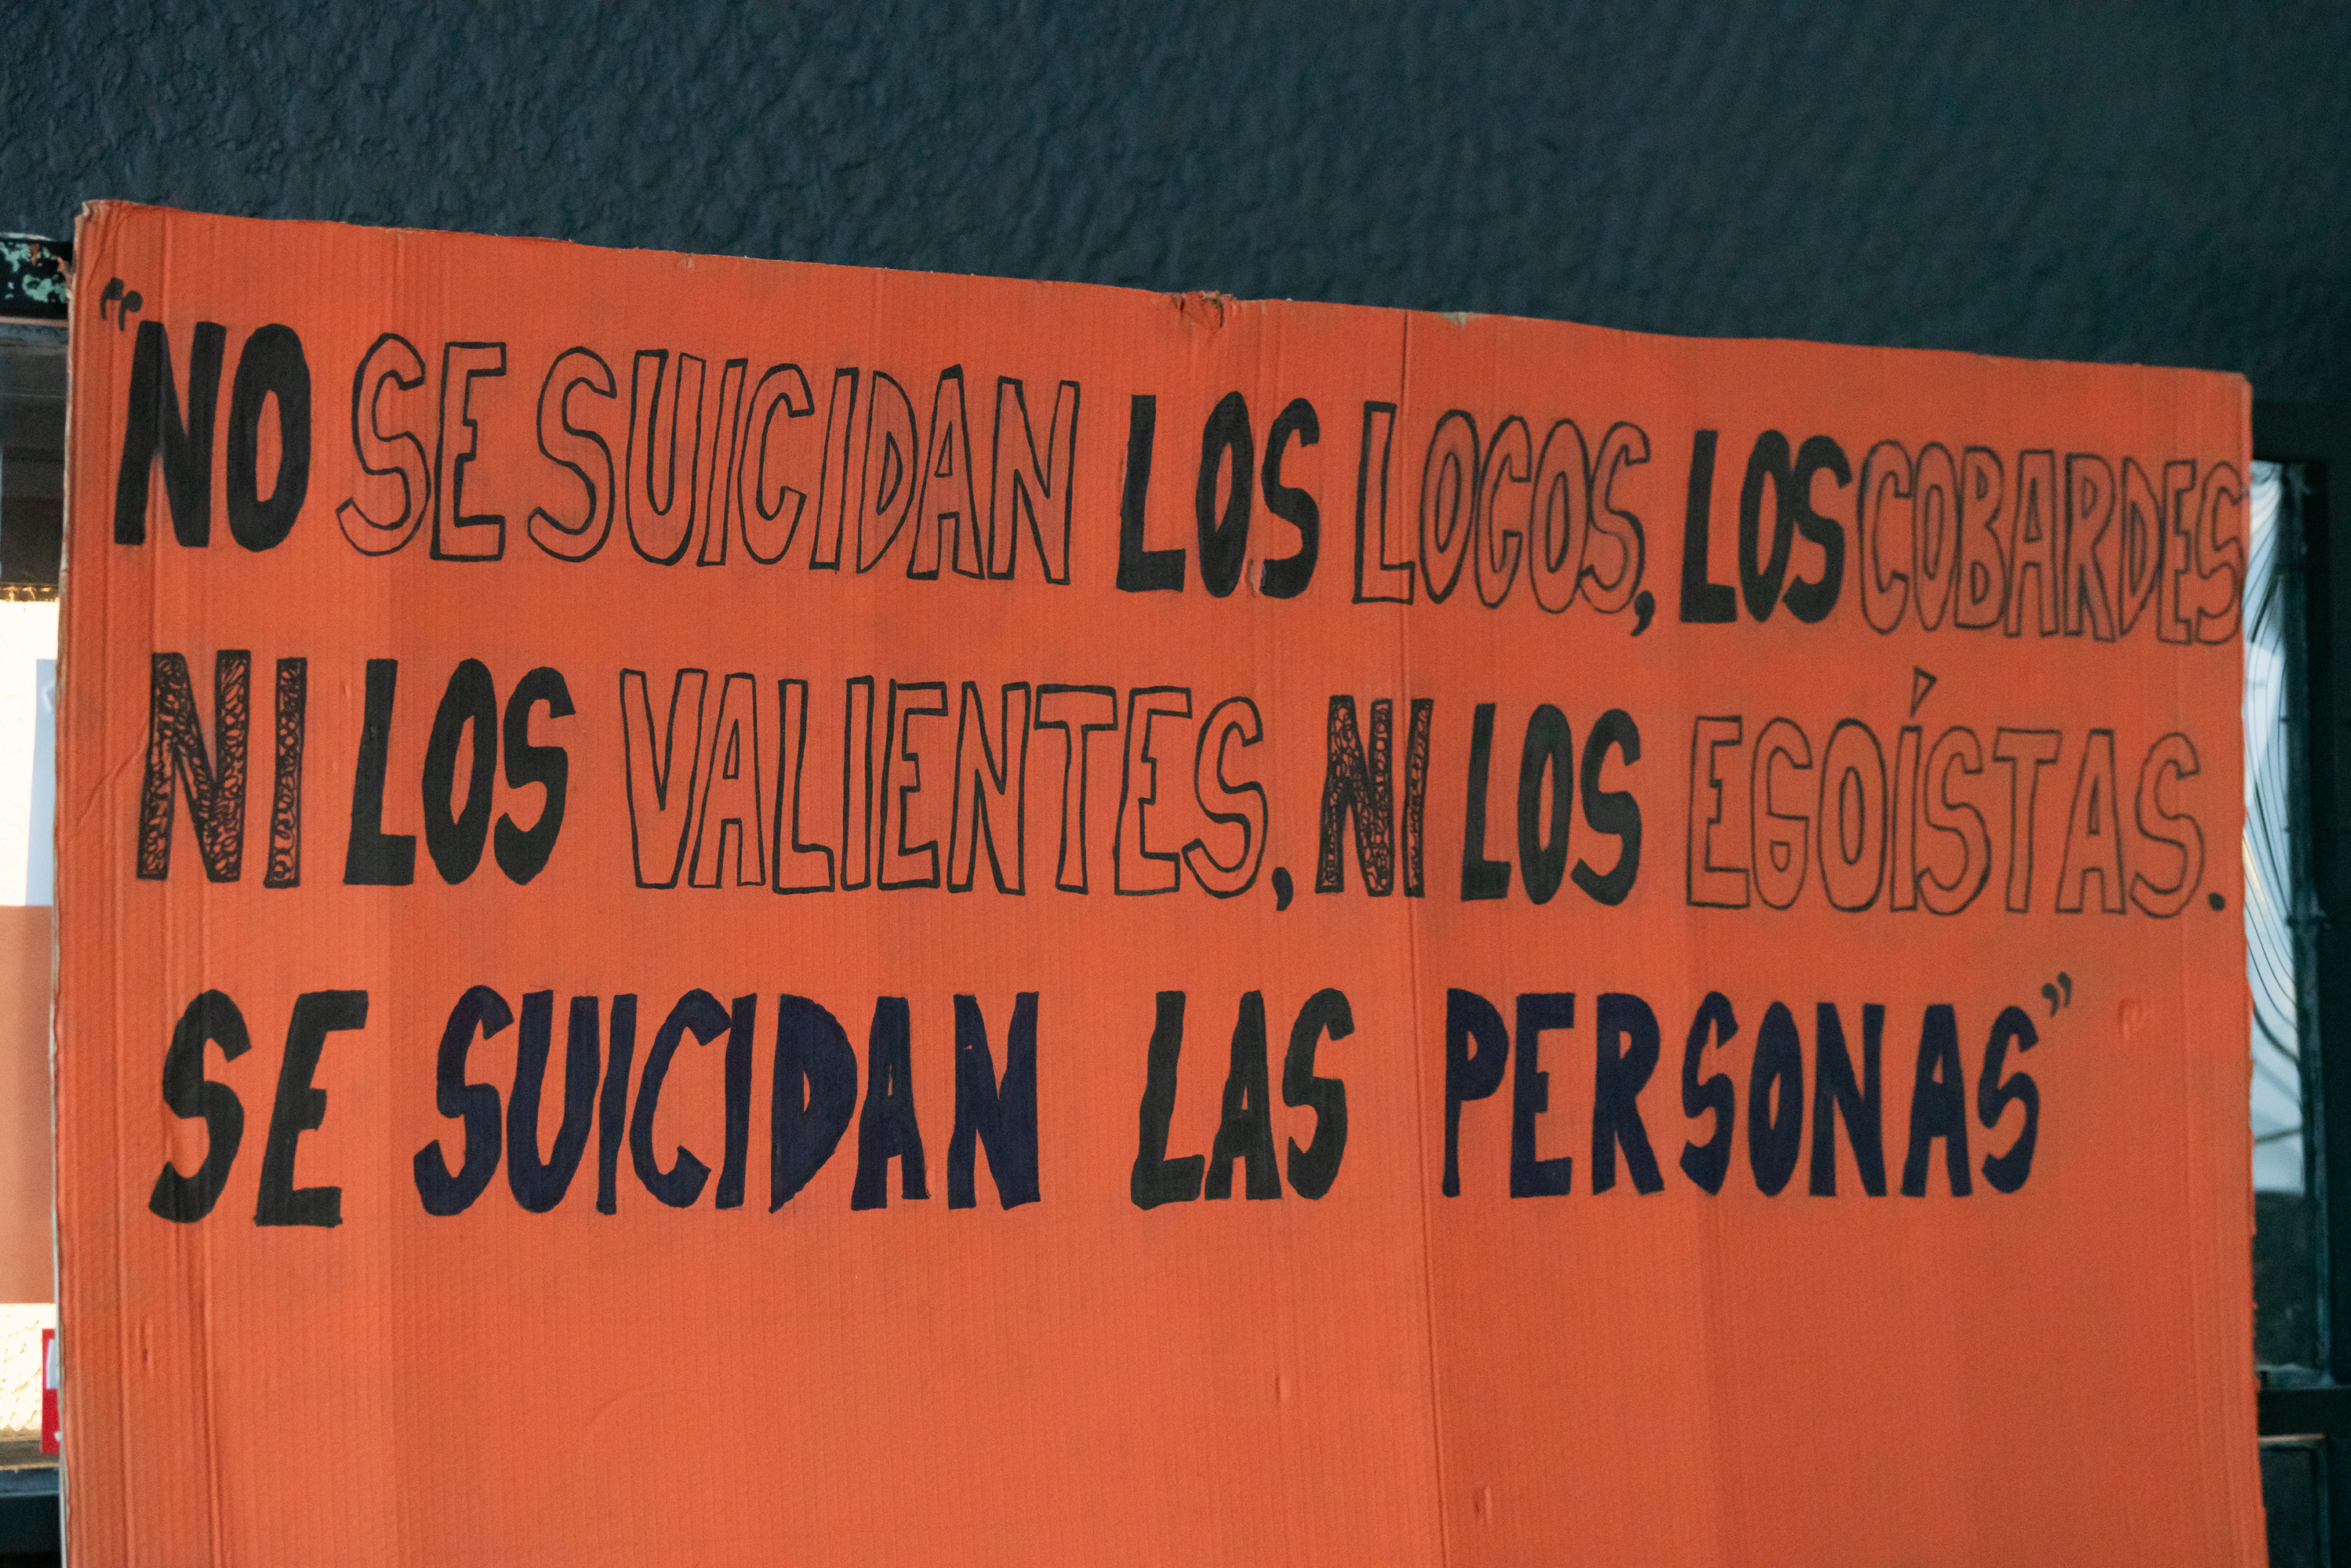 “NO SE SUICIDAN LOS LOCOS, LOS COBARDES
NI LOS VALIENTES, NI LOS EGOÍSTAS.
SE SUICIDAN LAS PERSONAS”